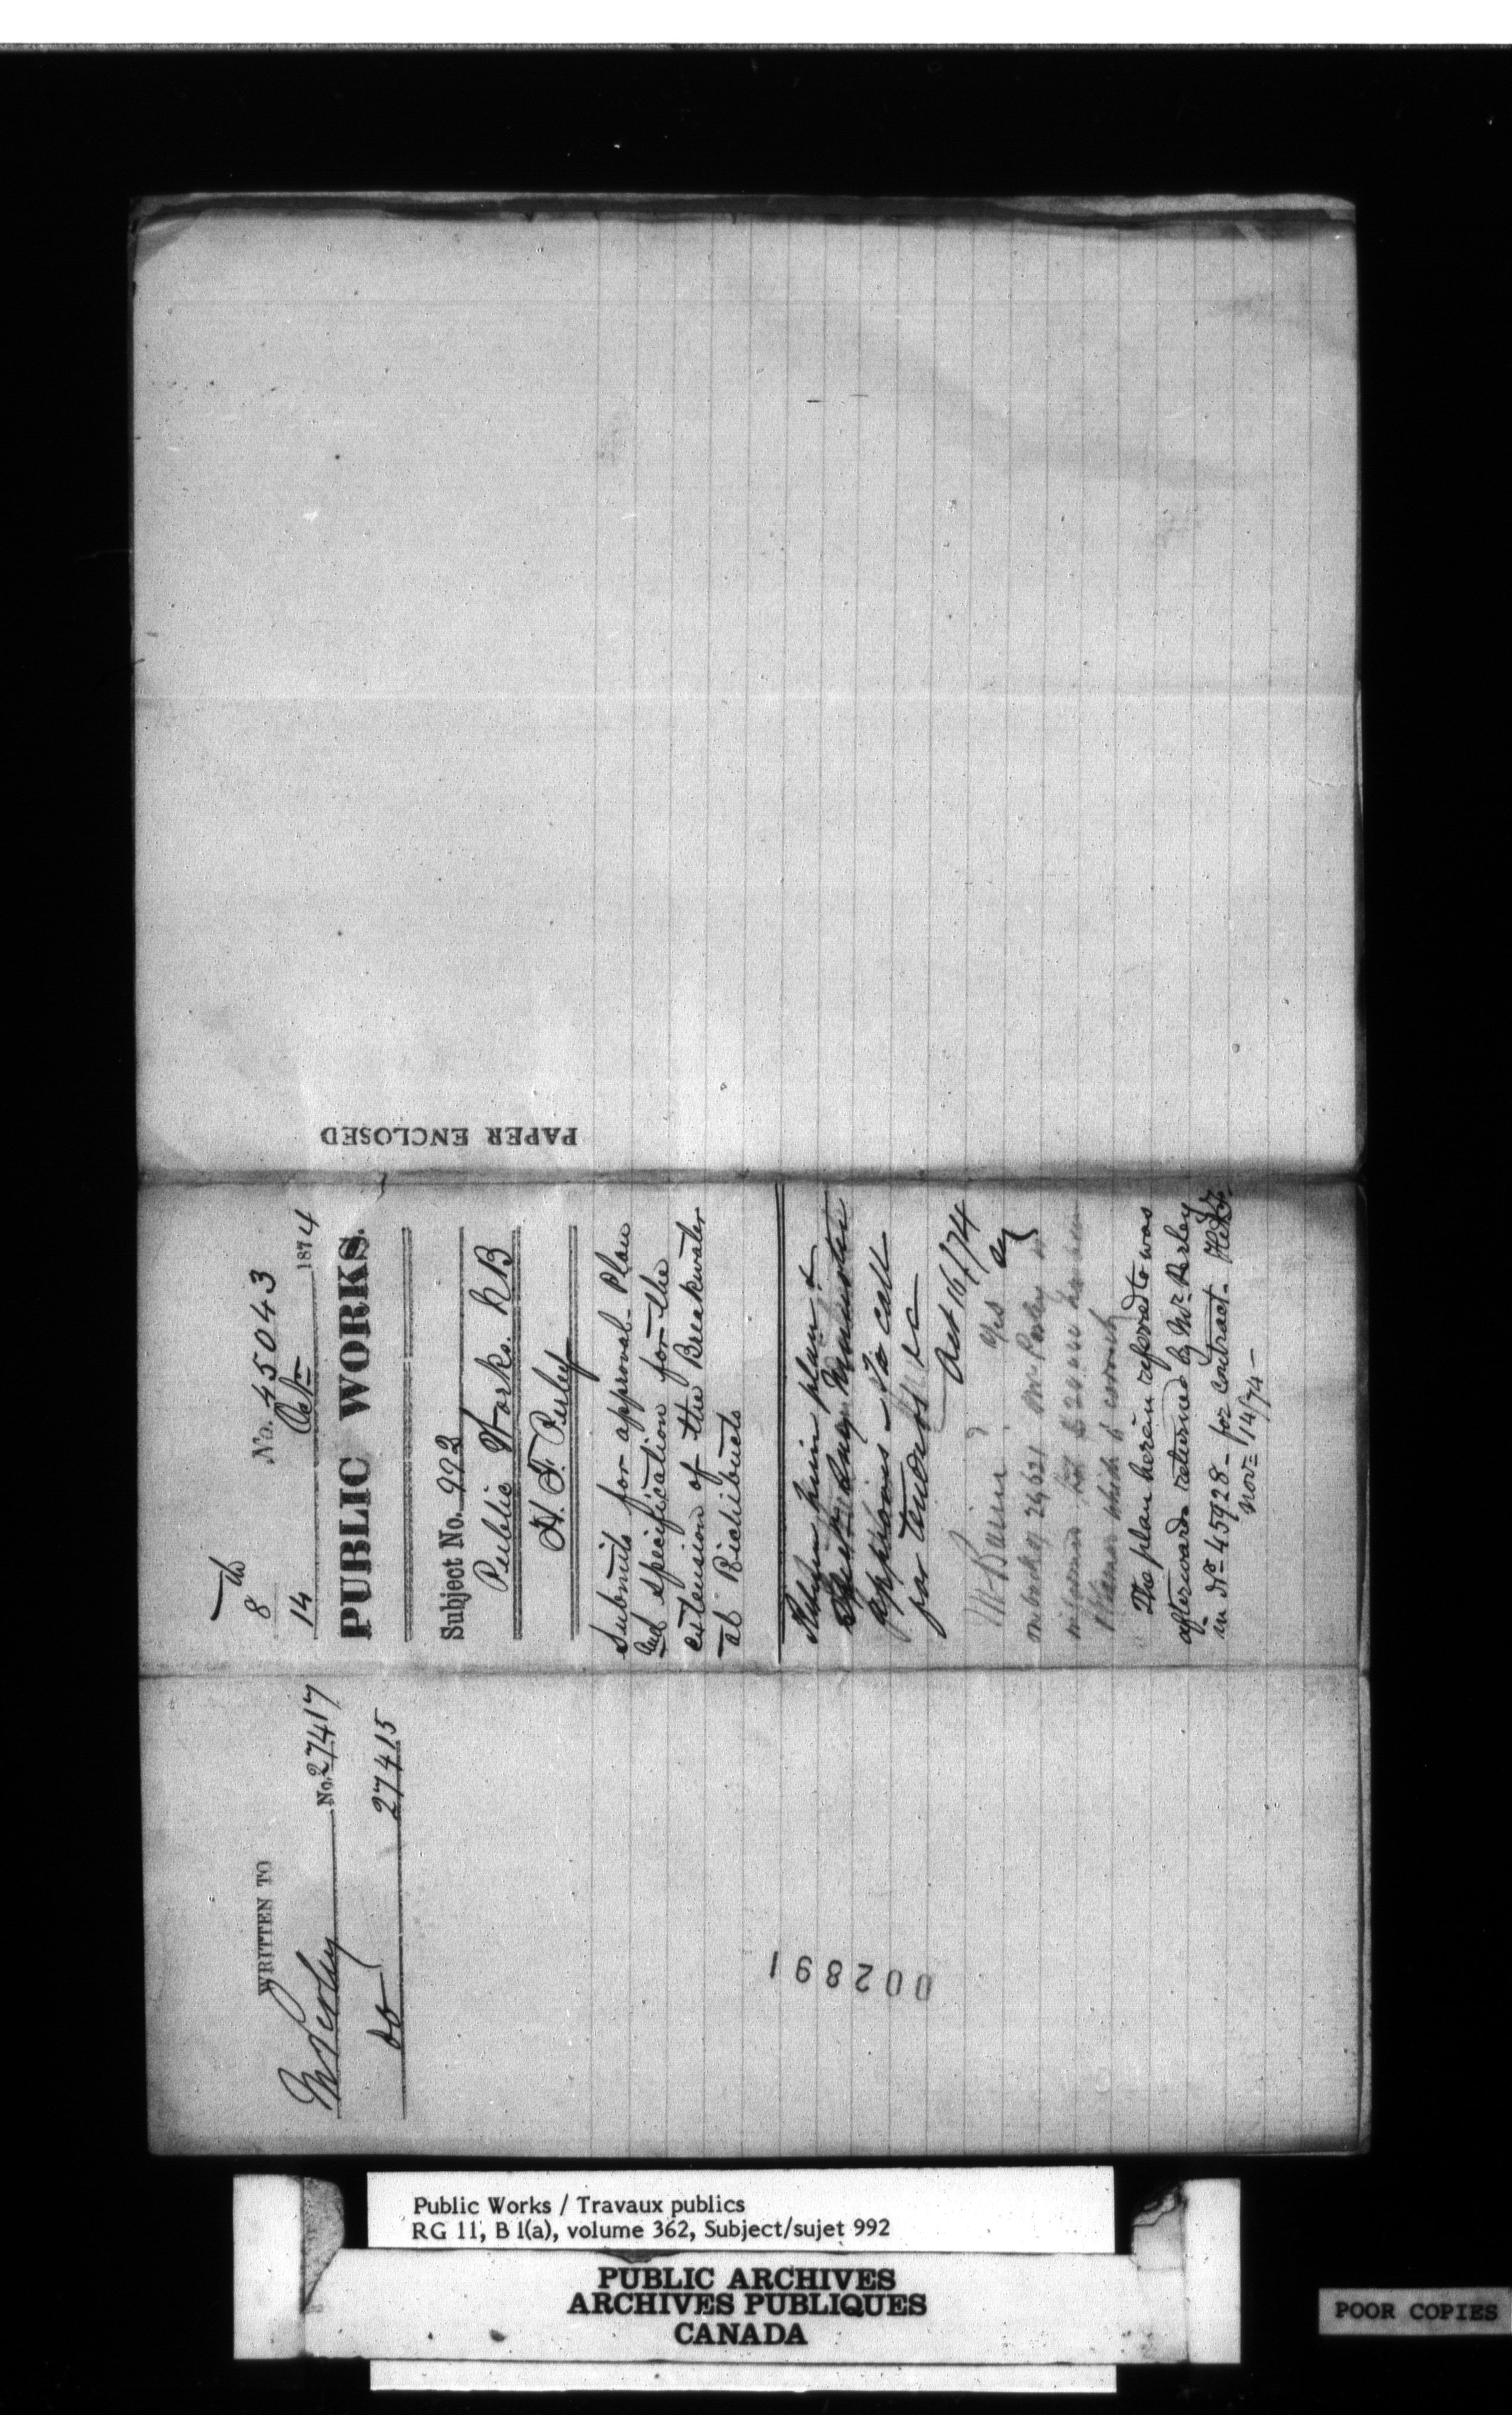 8th
No. 45043
14 Octr 1874
PUBLIC WORKS.
Subject No. 993
Public Works. N B
H. F. Perley
Submits for approval Plan
and specification for the
extension of the Breakwater
at Richibucto
Return him plan &
approves - To call
for tenders &c
Oct 16/74
Mr Baine
Mr Perley
The plan herein referred to was
afterwards returned by Mr Perley
in No 45928 - for contract.
Novr 14/74 -
PAPER ENCLOSED
WRITTEN TO
Mr Perley No. 27417
do 27415
002891
Public Works / Travaux publics
RG 11, B 1(a), volume 362, Subject/sujet 992
PUBLIC ARCHIVES
ARCHIVES PUBLIQUES
CANADA
POOR COPIES